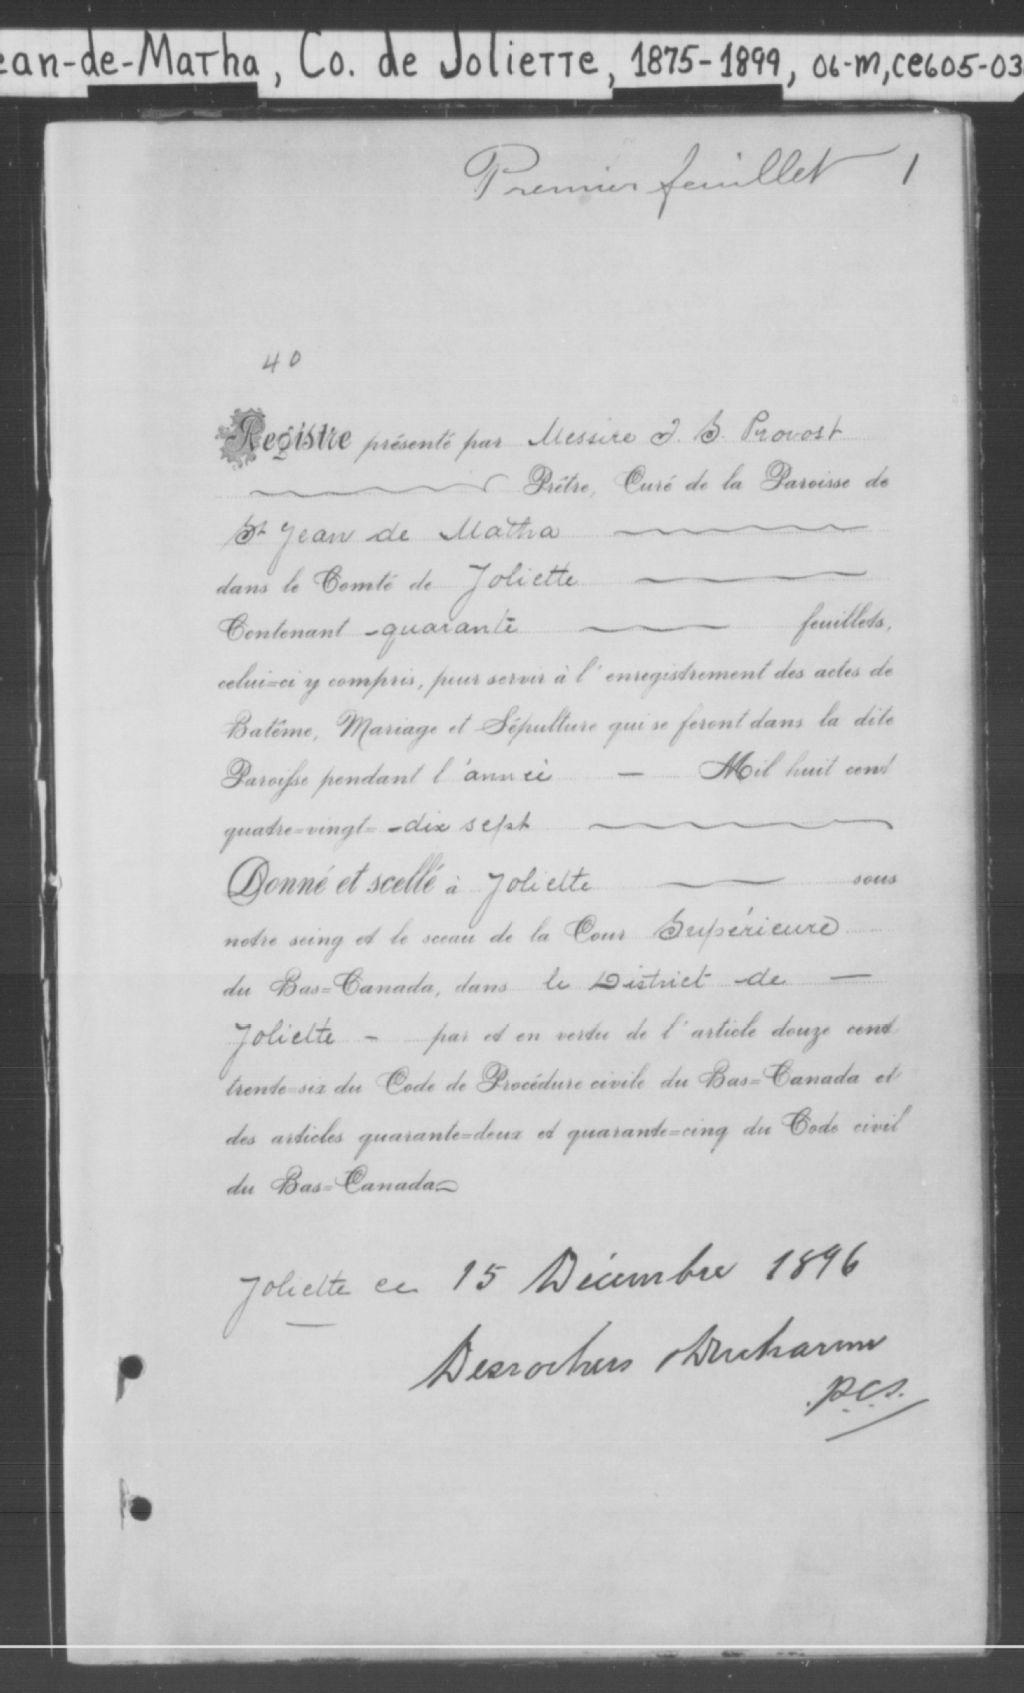 ean-de-Matha, Co. de Joliette, 1875-1899, 06-M,CE605-03
Premier feuillet 1
40
Registre présenté par Messire J. B. Provost
Prêtre, Curé de la Paroisse de
St Jean de Matha
dans le Comté de Joliette
Contenant quarante feuillets,
celui=ci y compris, pour servir à l'enregistrement des actes de
Batême, Mariage et Sépulture qui se feront dans la dite
Paroisse pendant l'année — Mil huit cent
quatre=vingt=-dix sept
Donné et scellé à Joliette sous
notre seing et le sceau de la Cour Supérieure
du Bas=Canada, dans le District de —
Joliette - par et en vertu de l'article douze cent
trente=six du Code de Procédure civile du Bas=Canada et
des articles quarante=deux et quarante=cinq du Code civil
du Bas=Canada
Joliette ce 15 Décembre 1896
Desrochers Ducharme
P.C.S.